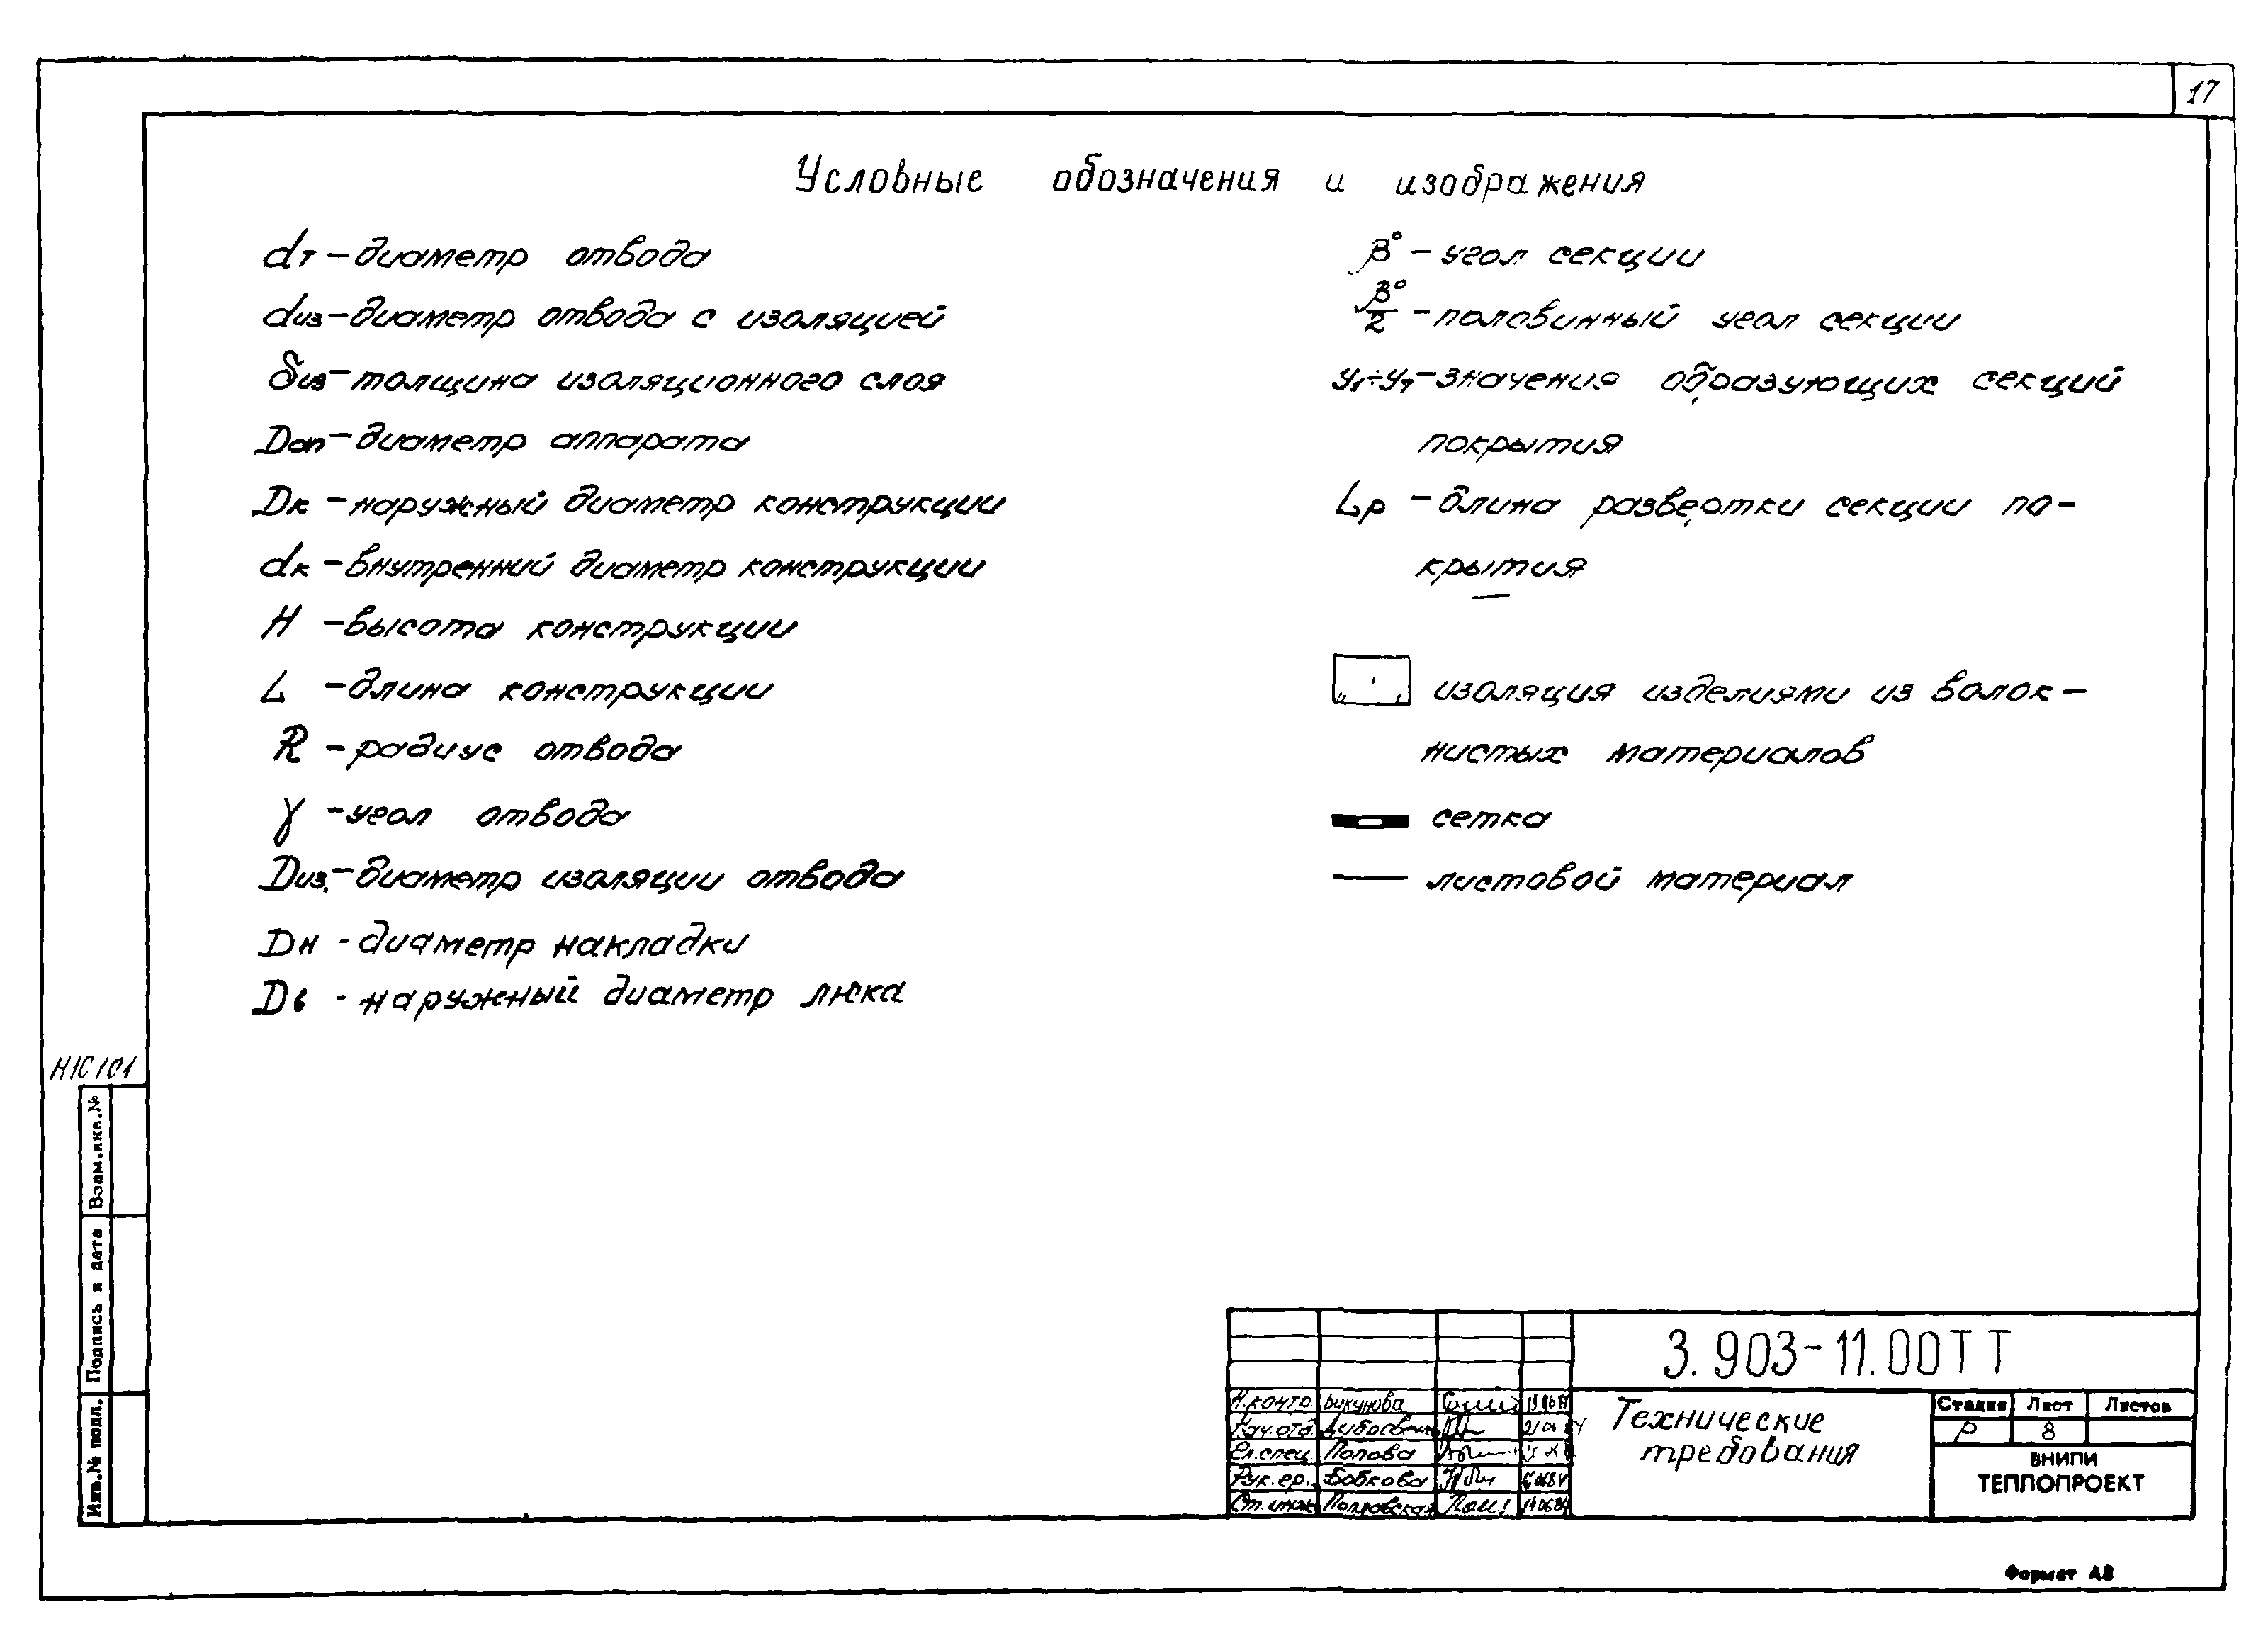 17
Условные обозначения и изображения
dт – диаметр отвода
dиз – диаметр отвода с изоляцией
δиз – толщина изоляционного слоя
Dап – диаметр аппарата
Dк – наружный диаметр конструкции
dк – внутренний диаметр конструкции
H – высота конструкции
L – длина конструкции
R – радиус отвода
γ – угол отвода
Dиз. – диаметр изоляции отвода
Dн - диаметр накладки
Dв - наружный диаметр люка
β° – угол секции
β°/2 – половинный угол секции
У₁÷У₇ – значения образующих секций
покрытия
Lр – длина развертки секции по-
крытия
изоляция изделиями из волок-
нистых материалов
сетка
листовой материал
Н10101
Взам.инв.№
Подпись и дата
Инв.№ подл.
3.903-11.00ТТ
Технические
требования
Стадия Лист Листов
Р 8
ВНИПИ
ТЕПЛОПРОЕКТ
Н.контр. Викунова
Нач.отд.
Гл.спец. Попова
Рук.гр. Бобкова
Ст.инж.
Формат А3